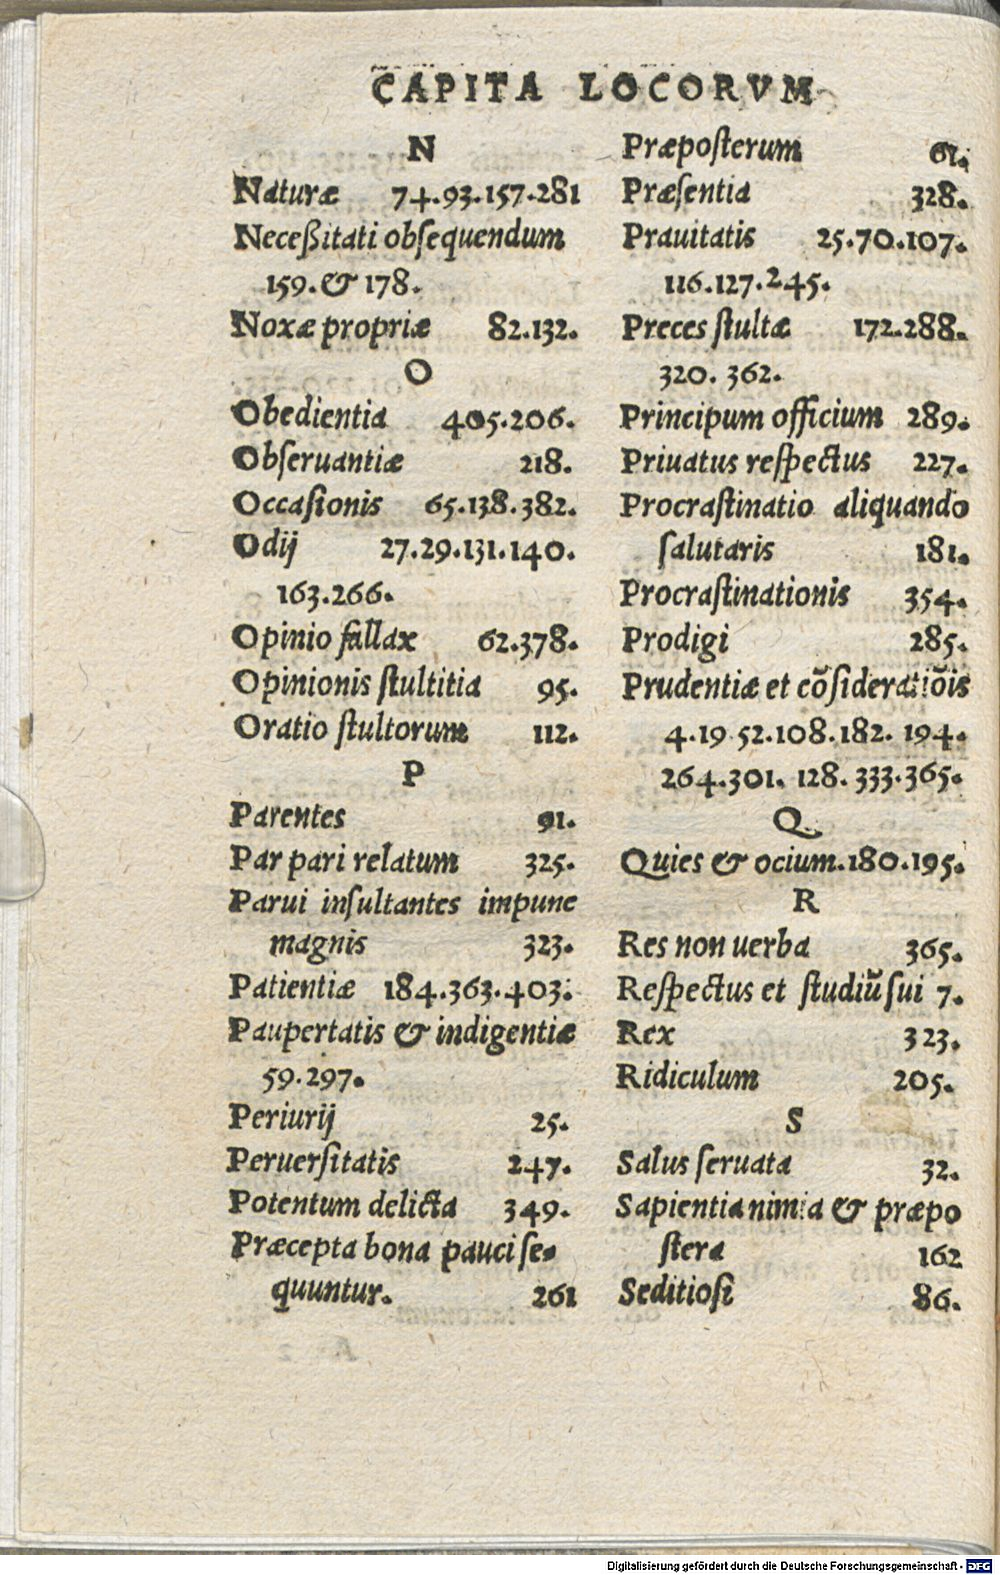 CAPITA LOCORVM
N
Naturæ 74.93.157.281
Neceßitati obſequendum
159. & 178.
Noxæ propriæ 82.132.
O
Obedientia 405.206.
Obſeruantiæ 218.
Occaſionis 65.138.382.
Odij 27.29.131.140.
163.266.
Opinio fallax 62.378.
Opinionis ſtultitia 95.
Oratio ſtultorum 112.
P
Parentes 91.
Par pari relatum 325.
Parui inſultantes impune
magnis 323.
Patientiæ 184.363.403.
Paupertatis & indigentiæ
59.297.
Periurij 25.
Peruerſitatis 247.
Potentum delicta 349.
Præcepta bona pauci ſe-
quuntur. 261
Præpoſterum 61.
Præſentia 328.
Prauitatis 25.70.107.
116.127.245.
Preces ſtultæ 172.288.
320. 362.
Principum officium 289.
Priuatus reſpectus 227.
Procraſtinatio aliquando
ſalutaris 181.
Procraſtinationis 354.
Prodigi 285.
Prudentiæ et cõſideratiõis
4.19 52.108.182. 194.
264.301. 128. 333.365.
Q
Quies & ocium.180.195.
R
Res non uerba 365.
Reſpectus et ſtudiũ ſui 7.
Rex 323.
Ridiculum 205.
S
Salus ſeruata 32.
Sapientia nimia & præpo
ſtera 162
Seditioſi 86.
Digitalisierung gefördert durch die Deutsche Forschungsgemeinschaft - DFG